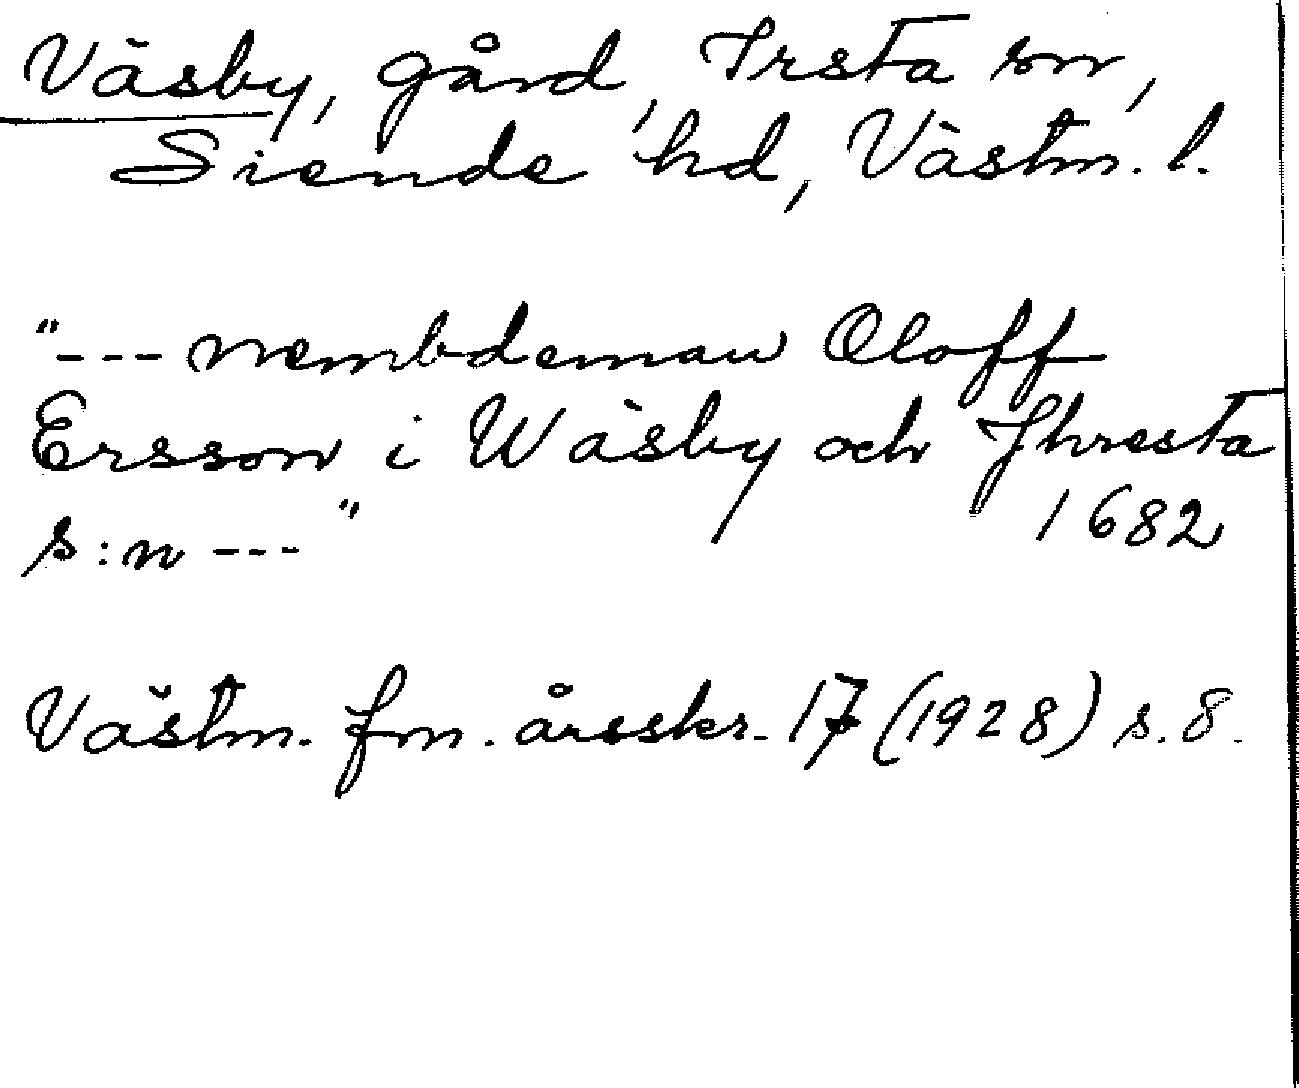 Väsby, gård, Irsta sn,
Siende hd, Västm. l.
"--- nembdeman Oloff
Ersson i Wäsby och Jhresta
s:n --- " 1682
Västm. fm. årsskr. 17 (1928) s. 8.